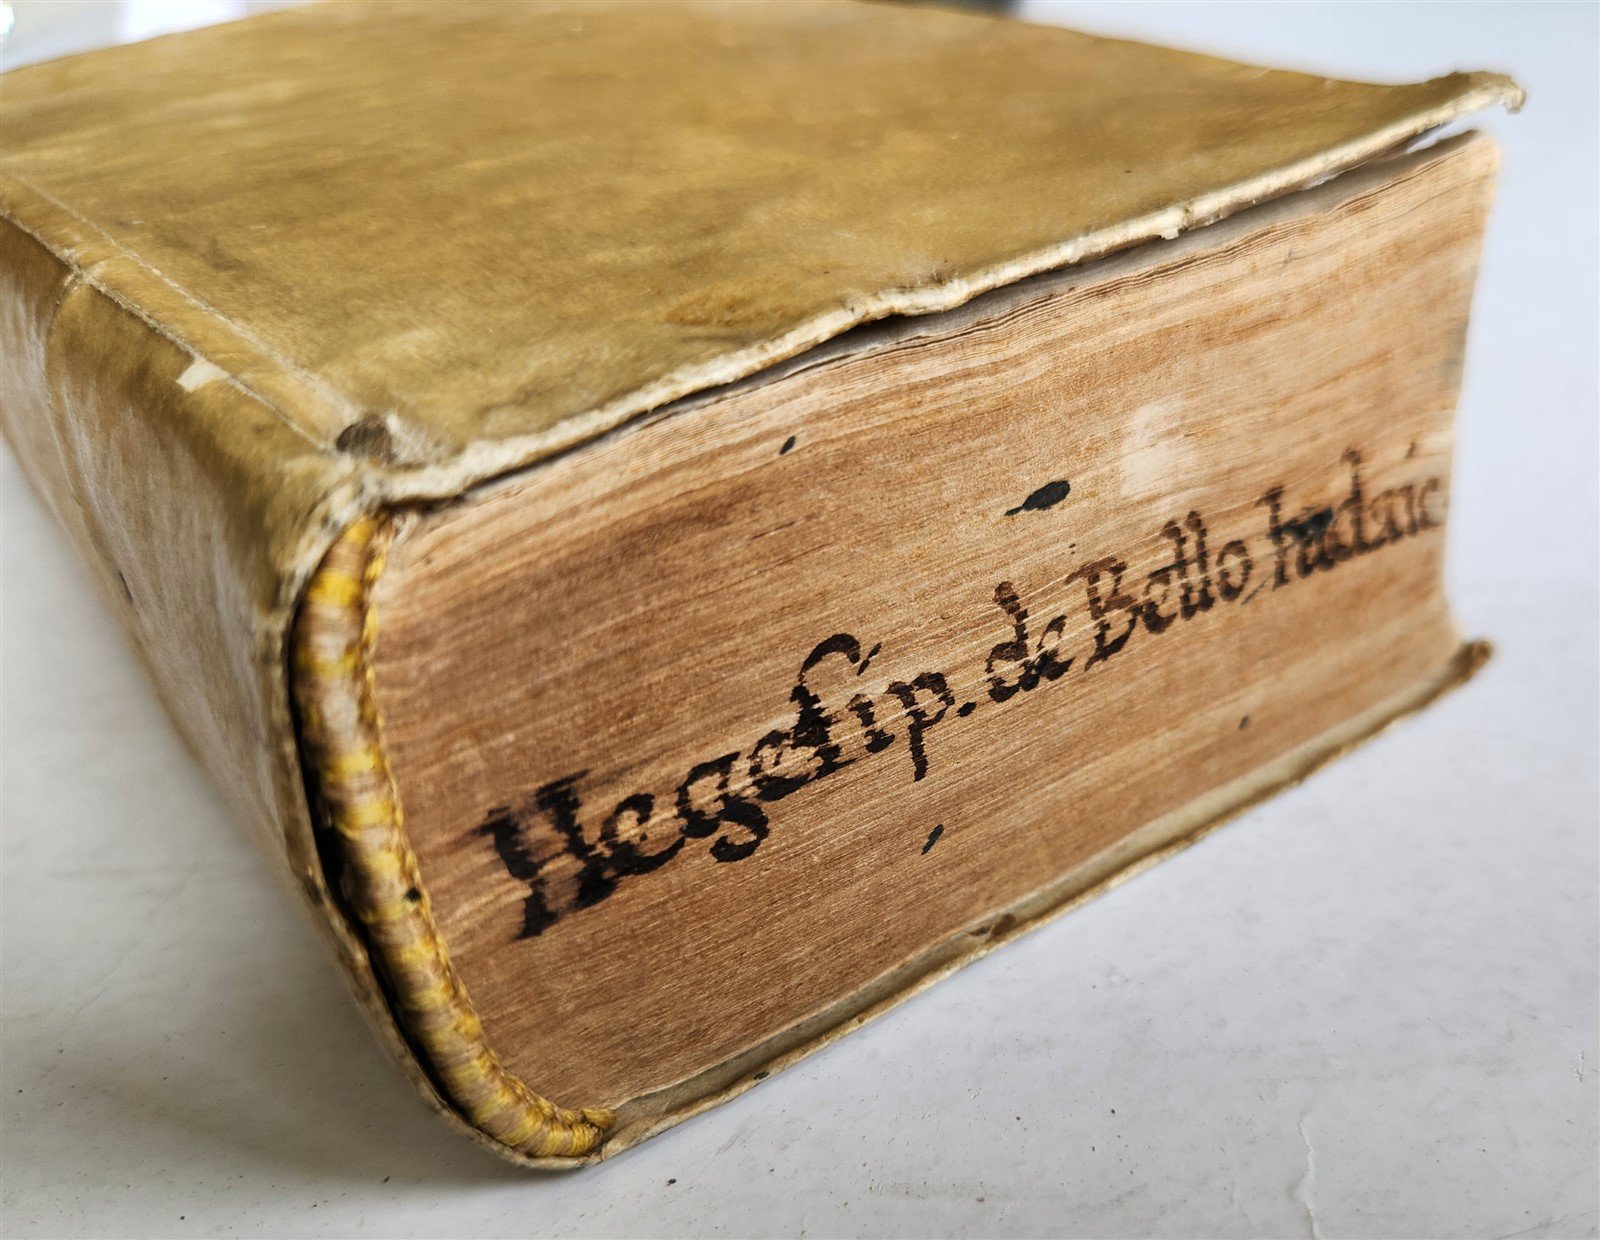 Hegeſip. de Bello Iudaic